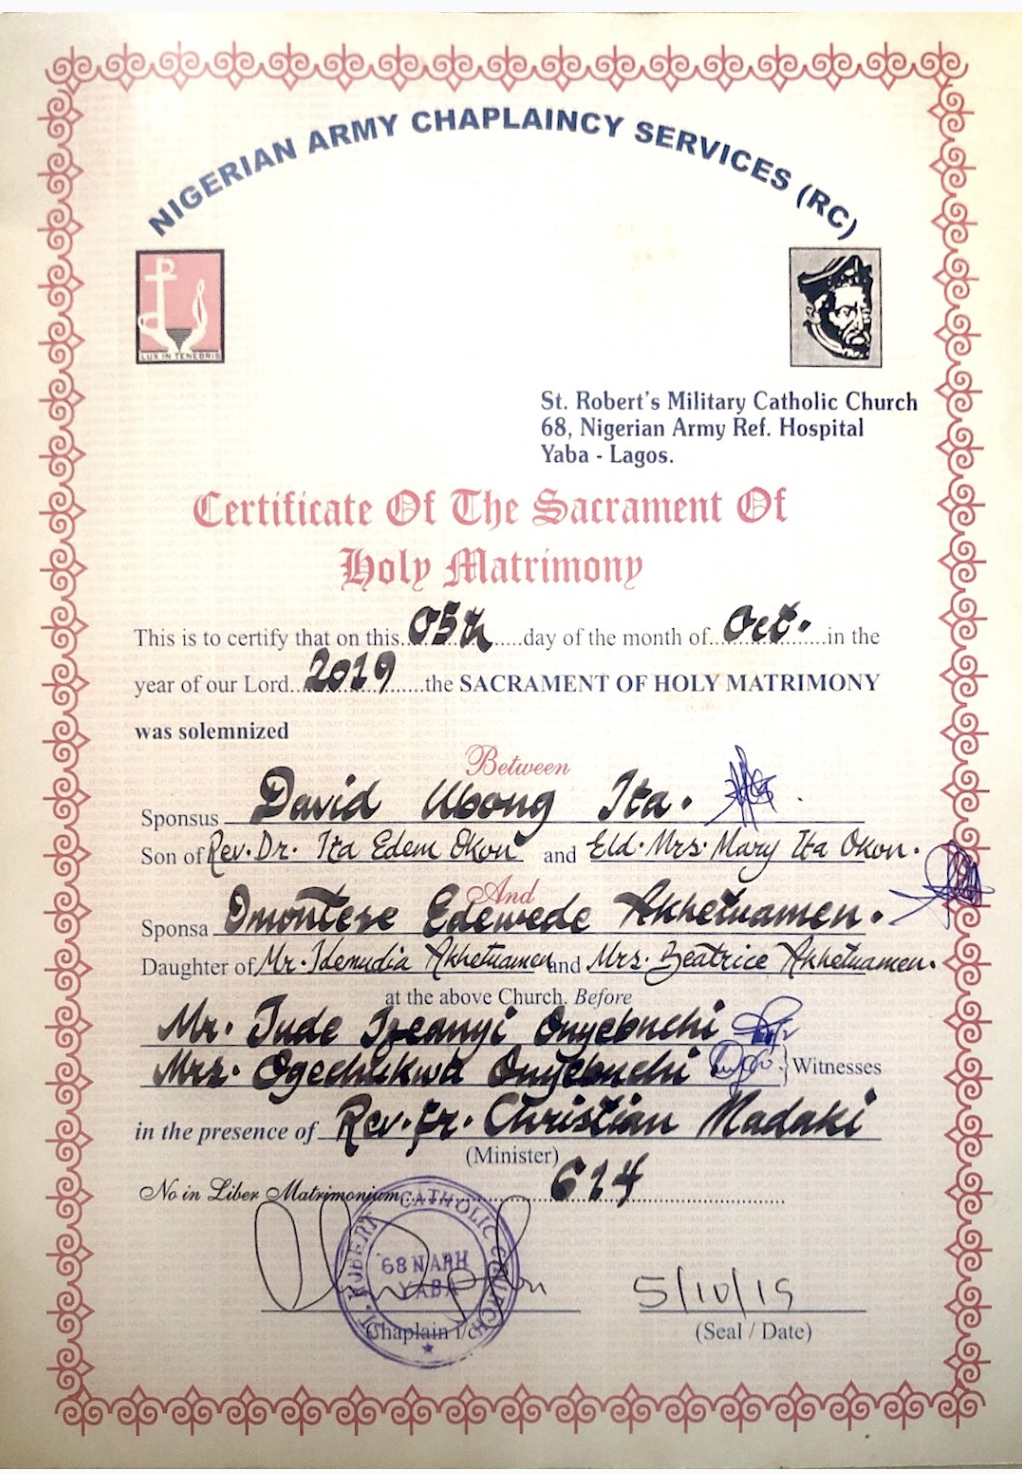 NIGERIAN ARMY CHAPLAINCY SERVICES (RC)
LUX IN TENEBRIS
St. Robert's Military Catholic Church
68, Nigerian Army Ref. Hospital
Yaba - Lagos.
Certificate Of The Sacrament Of
Holy Matrimony
This is to certify that on this 05th day of the month of Oct. in the
year of our Lord 2019 the SACRAMENT OF HOLY MATRIMONY
was solemnized
Between
Sponsus David Ubong Ita.
Son of Rev. Dr. Ita Edem Okon and Eld. Mrs. Mary Ita Okon.
And
Sponsa Omontese Edewede Akhetuamen.
Daughter of Mr. Idemudia Akhetuamen and Mrs. Beatrice Akhetuamen.
at the above Church. Before
Mr. Jude Ifeanyi Onyebuchi
Mrs. Ogechukwu Onyebuchi } Witnesses
in the presence of Rev. Fr. Christian Madaki
(Minister)
No in Liber Matrimonium 614
ST. ROBERT CATHOLIC CHURCH
68 NARH
YABA
5/10/19
Chaplain i/c
(Seal / Date)